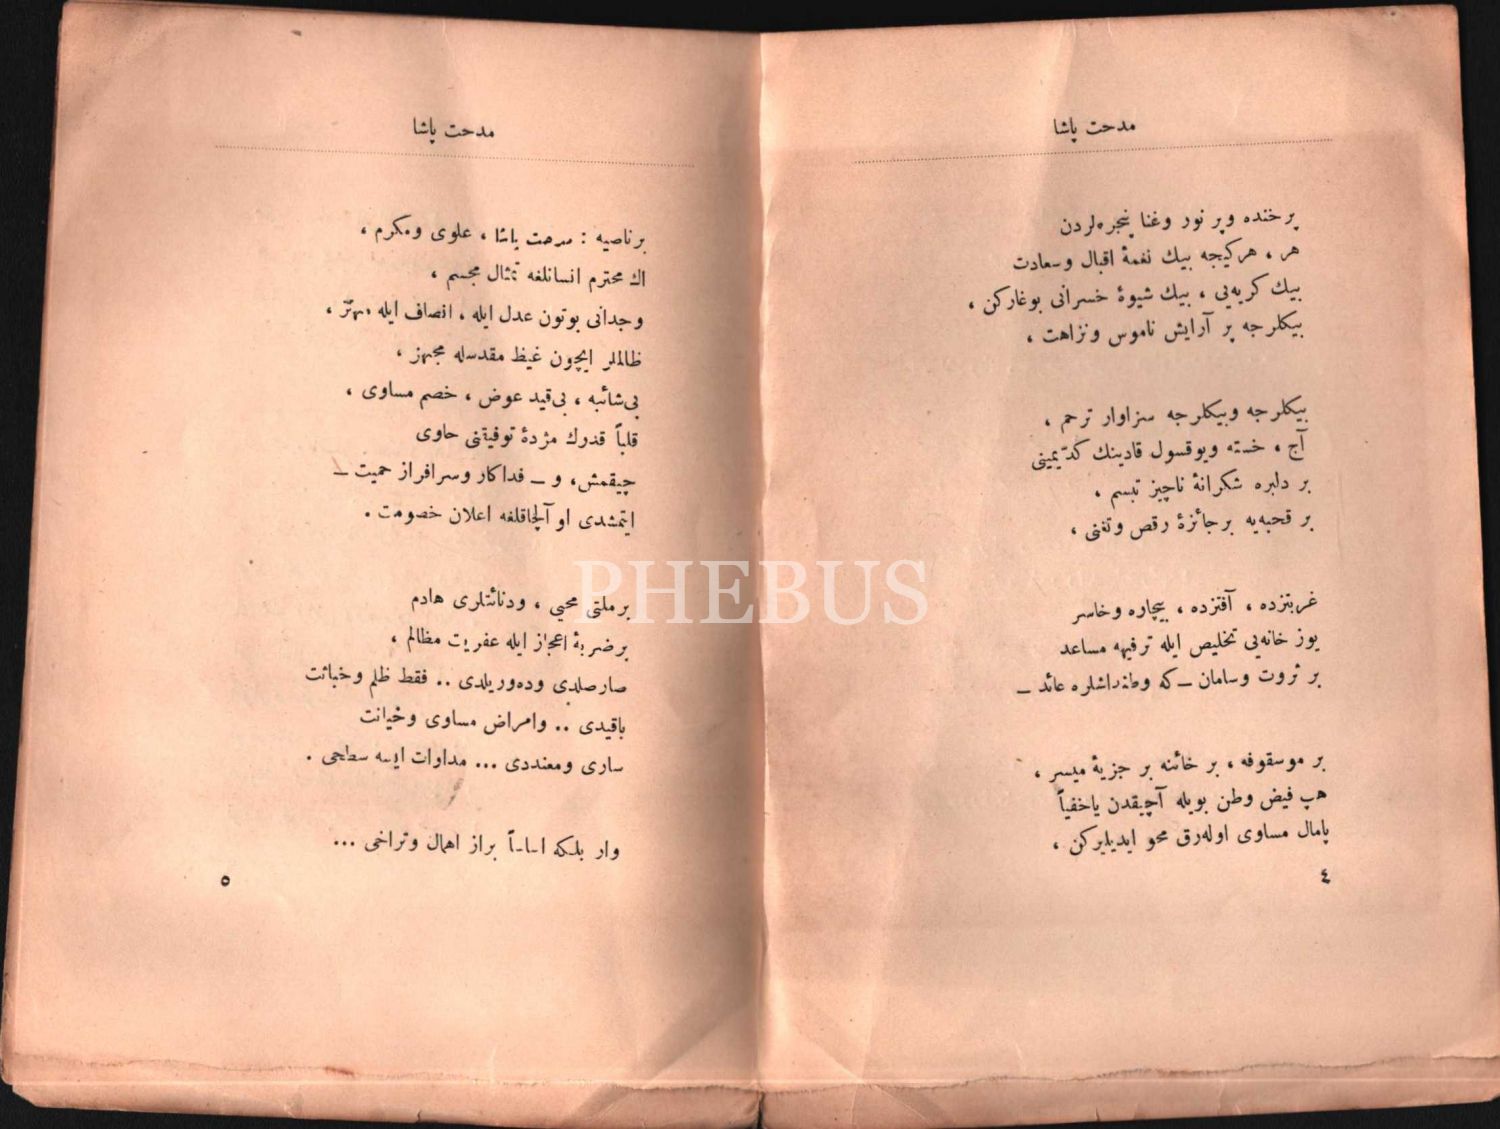 مدحت پاشا
پر خنده وپر نور وغنا پنجره‌لردن
هر ، هركيجه بيك نغمهٔ اقبال وسعادت
بيك كريه‌يى ، بيك شيوهٔ خسرانى بوغاركن ،
بيكلرجه پر آرايش ناموس ونزاهت ،
بيكلرجه وبيكلرجه سزاوار ترحم ،
آج ، خسته ويوقسول قادينك كدّ يمينى
بر دلبره شكرانهٔ ناچيز تبسم ،
بر قحبه‌يه برجائزهٔ رقص وتغنى ،
غربتزده ، آفتزده ، بيچاره وخاسر
يوز خانه‌يى تخليص ايله ترفيهه مساعد
بر ثروت وسامان ــ كه وطنداشلره عائد ــ
بر موسقوفه ، بر خائنه بر جزيهٔ ميسر ،
هپ فيض وطن بويله آچيقدن ياخفياً
پامال مساوى اوله‌رق محو ايديليركن ،
٤
مدحت پاشا
برناصيه : مدحت پاشا ، علوى ومكرم ،
اك محترم انسانلغه تمثال مجسم ،
وجدانى بوتون عدل ايله ، انصاف ايله مهتزّ ،
ظالملر ايچون غيظ مقدسله مجهز ،
بى‌شائبه ، بى‌قيد عوض ، خصم مساوى ،
قلباً قدرك مژدهٔ توفيقنى حاوى
چيقمش، و ــ فداكار وسرافراز حميت ــ
ايتمشدى او آلچاقلغه اعلان خصومت .
برملتى محيى ، ودنائتلرى هادم
برضربهٔ اعجاز ايله عفريت مظالم ،
صارصلدى وده‌وريلدى .. فقط ظلم وخبائت
باقيدى .. وامراض مساوى وخيانت
سارى ومعنددى ... مداوات ايسه سطحى .
وار بلكه اساساً براز اهمال وتراخى ...
٥
PHEBUS